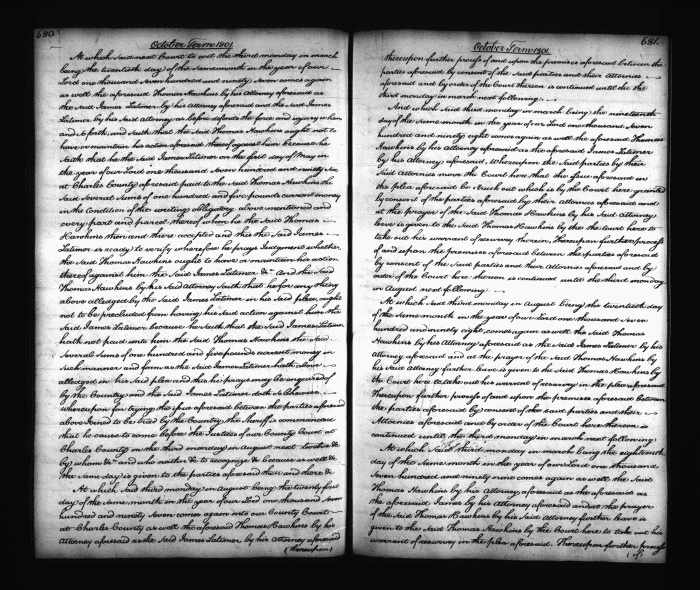 680
October Term 1801
At which said next Court to wit the third monday in march
being the twentieth day of the same month in the year of our
Lord one thousand seven hundred and ninety seven comes again
as well the aforesaid Thomas Hawkins by his Attorney aforesaid as
the said James Latimer by his Attorney aforesaid and the said James
Latimer by his said Attorney as before defends the force and injury when
and so forth, and saith that the said Thomas Hawkins ought not to
have or maintain his action aforesaid thereof against him because he
saith that he the said James Latimer on the first day of May in
the year of our Lord one thousand seven hundred and ninety six
at Charles County aforesaid paid to the said Thomas Hawkins the
said several sums of one hundred and five pounds current money
in the Condition of the writing obligatory above mentioned and
every part and parcel thereof when he the said Thomas
Hawkins then and there accepted and this the said James
Latimer is ready to verify wherefore he prays Judgment whether
the said Thomas Hawkins ought to have or maintain his action
thereof against him the said James Latimer &c And the said
Thomas Hawkins by his said Attorney saith that he for any thing
above alledged by the said James Latimer in his said plea, ought
not to be precluded from having his said action against him the
said James Latimer because he saith that the said James Latimer
hath not paid unto him the said Thomas Hawkins the said
several sums of one hundred and five pounds current money in
such manner and form as the said James Latimer hath above
alledged in his said plea and this he prays may be enquired of
by the Country and the said James Latimer doth so likewise
Whereupon for trying the issue aforesaid between the parties aforesaid
above Joined to be tried by the Country, the Sheriff is commanded
that he cause to come before the Justices of our County Court at
Charles County on the third monday in August next twelve &c
by whom &c and who neither &c to recognize &c because as well &c
the same day is given to the parties aforesaid then and there &c
At which said third monday in August being the twenty first
day of the same month in the year of our Lord one thousand seven
hundred and ninety seven comes again into our County Court
at Charles County as well the aforesaid Thomas Hawkins by his
Attorney aforesaid as the said James Latimer by his Attorney aforesaid
(thereupon)
681
October Term 1801
thereupon further proofs of and upon the premises aforesaid between the
parties aforesaid by consent of the said parties and their Attornies
aforesaid and by order of the Court thereon is continued until the
third monday in march next following
And which said third monday in march being the nineteenth
day of the same month in the year of our Lord one thousand seven
hundred and ninety eight comes again as well the aforesaid Thomas
Hawkins by his Attorney aforesaid as the aforesaid James Latimer
by his Attorney aforesaid, Whereupon the said parties by their
said Attornies move the Court here that the issue aforesaid in
the plea aforesaid be struck out which is by the Court here granted
by consent of the parties aforesaid by their Attornies aforesaid and
at the prayer of the said Thomas Hawkins by his said Attorney
leave is given to the said Thomas Hawkins by the Court here to
take out his warrant of resurvey therein, Thereupon further process
of and upon the premises aforesaid between the parties aforesaid
by consent of the said parties and their Attornies aforesaid and by
order of the Court here thereon is continued until the third monday
in August next following
At which said third monday in August being the twentieth day
of the same month in the year of our Lord one thousand seven
hundred and ninety eight, comes again as well the said Thomas
Hawkins by his Attorney aforesaid as the said James Latimer by his
Attorney aforesaid and at the prayer of the said Thomas Hawkins by
his said Attorney further leave is given to the said Thomas Hawkins by
the Court here to take out his warrant of resurvey in the plea aforesaid
Thereupon further process of and upon the premises aforesaid between
the parties aforesaid by consent of the said parties and their
Attornies aforesaid and by order of the Court here thereon is
continued until the third monday in march next following
At which said third monday in march being the eighteenth
day of the same month in the year of our Lord one thousand
seven hundred and ninety nine comes again as well the said
Thomas Hawkins by his Attorney aforesaid as the aforesaid as
the aforesaid James by his Attorney aforesaid and at the prayer
of the said Thomas Hawkins by his said Attorney further leave is
given to the said Thomas Hawkins by the Court here to take out his
warrant of resurvey in the plea aforesaid. Thereupon further process
(of)